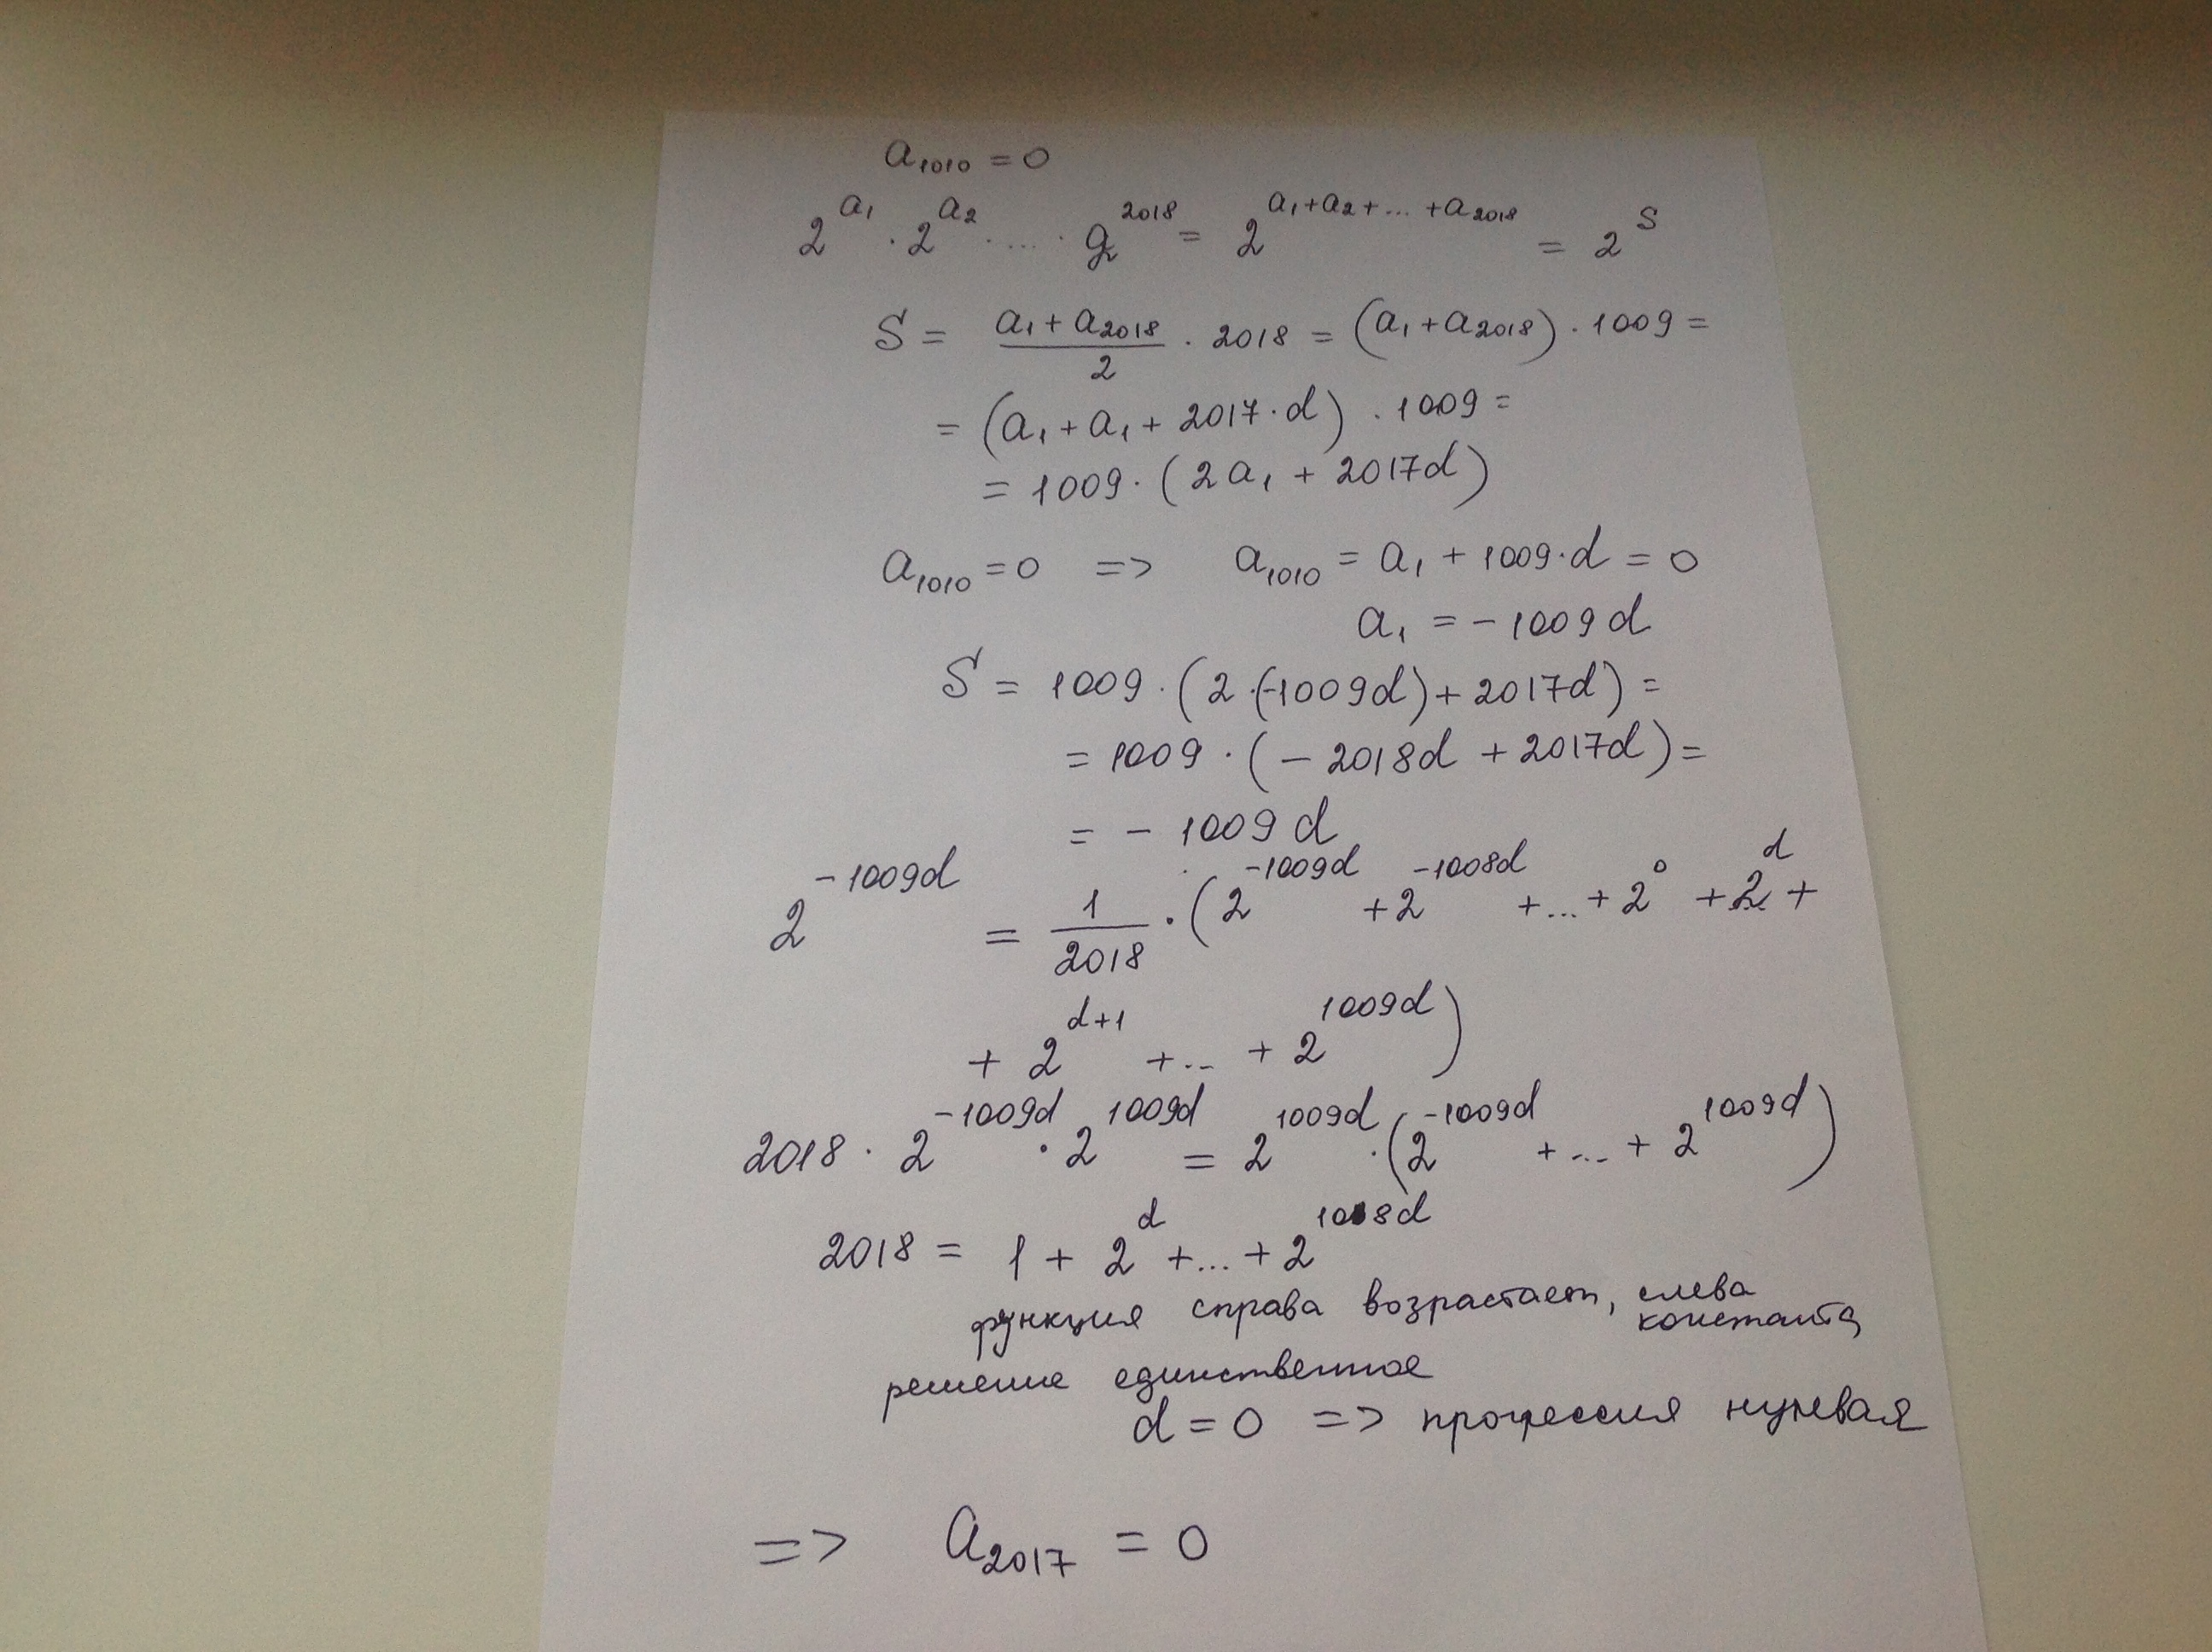 a₁₀₁₀ = 0
2^{a₁} · 2^{a₂} · .... · 2^{2018} = 2^{a₁+a₂+...+a₂₀₁₈} = 2^S
S = (a₁ + a₂₀₁₈)/2 · 2018 = (a₁ + a₂₀₁₈) · 1009 =
= (a₁ + a₁ + 2017 · d) · 1009 =
= 1009 · (2a₁ + 2017d)
a₁₀₁₀ = 0 => a₁₀₁₀ = a₁ + 1009 · d = 0
a₁ = - 1009 d
S = 1009 · (2 · (-1009d) + 2017d) =
= 1009 · (- 2018d + 2017d) =
= - 1009 d
2^{-1009d} = 1/2018 · (2^{-1009d} + 2^{-1008d} + ... + 2^0 + 2^d +
+ 2^{d+1} + .. + 2^{1009d})
2018 · 2^{-1009d} · 2^{1009d} = 2^{1009d} · (2^{-1009d} + ... + 2^{1009d})
2018 = 1 + 2^d + ... + 2^{1018d}
функция справа возрастает, слева константа
решение единственное
d = 0 => прогрессия нулевая
=> a₂₀₁₇ = 0